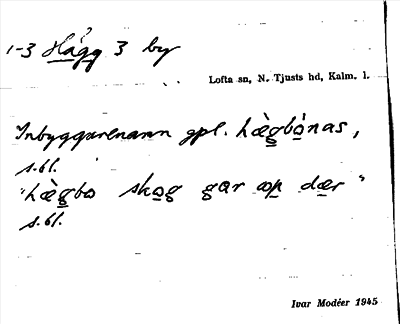 1-3 Hägg 3 by
Lofta sn, N. Tjusts hd, Kalm. l.
Inbyggarenamn gpl. hæ̀gbònas,
s.bl.
"hæ̀gbo skog går op dær"
s.bl.
Ivar Modéer 1945